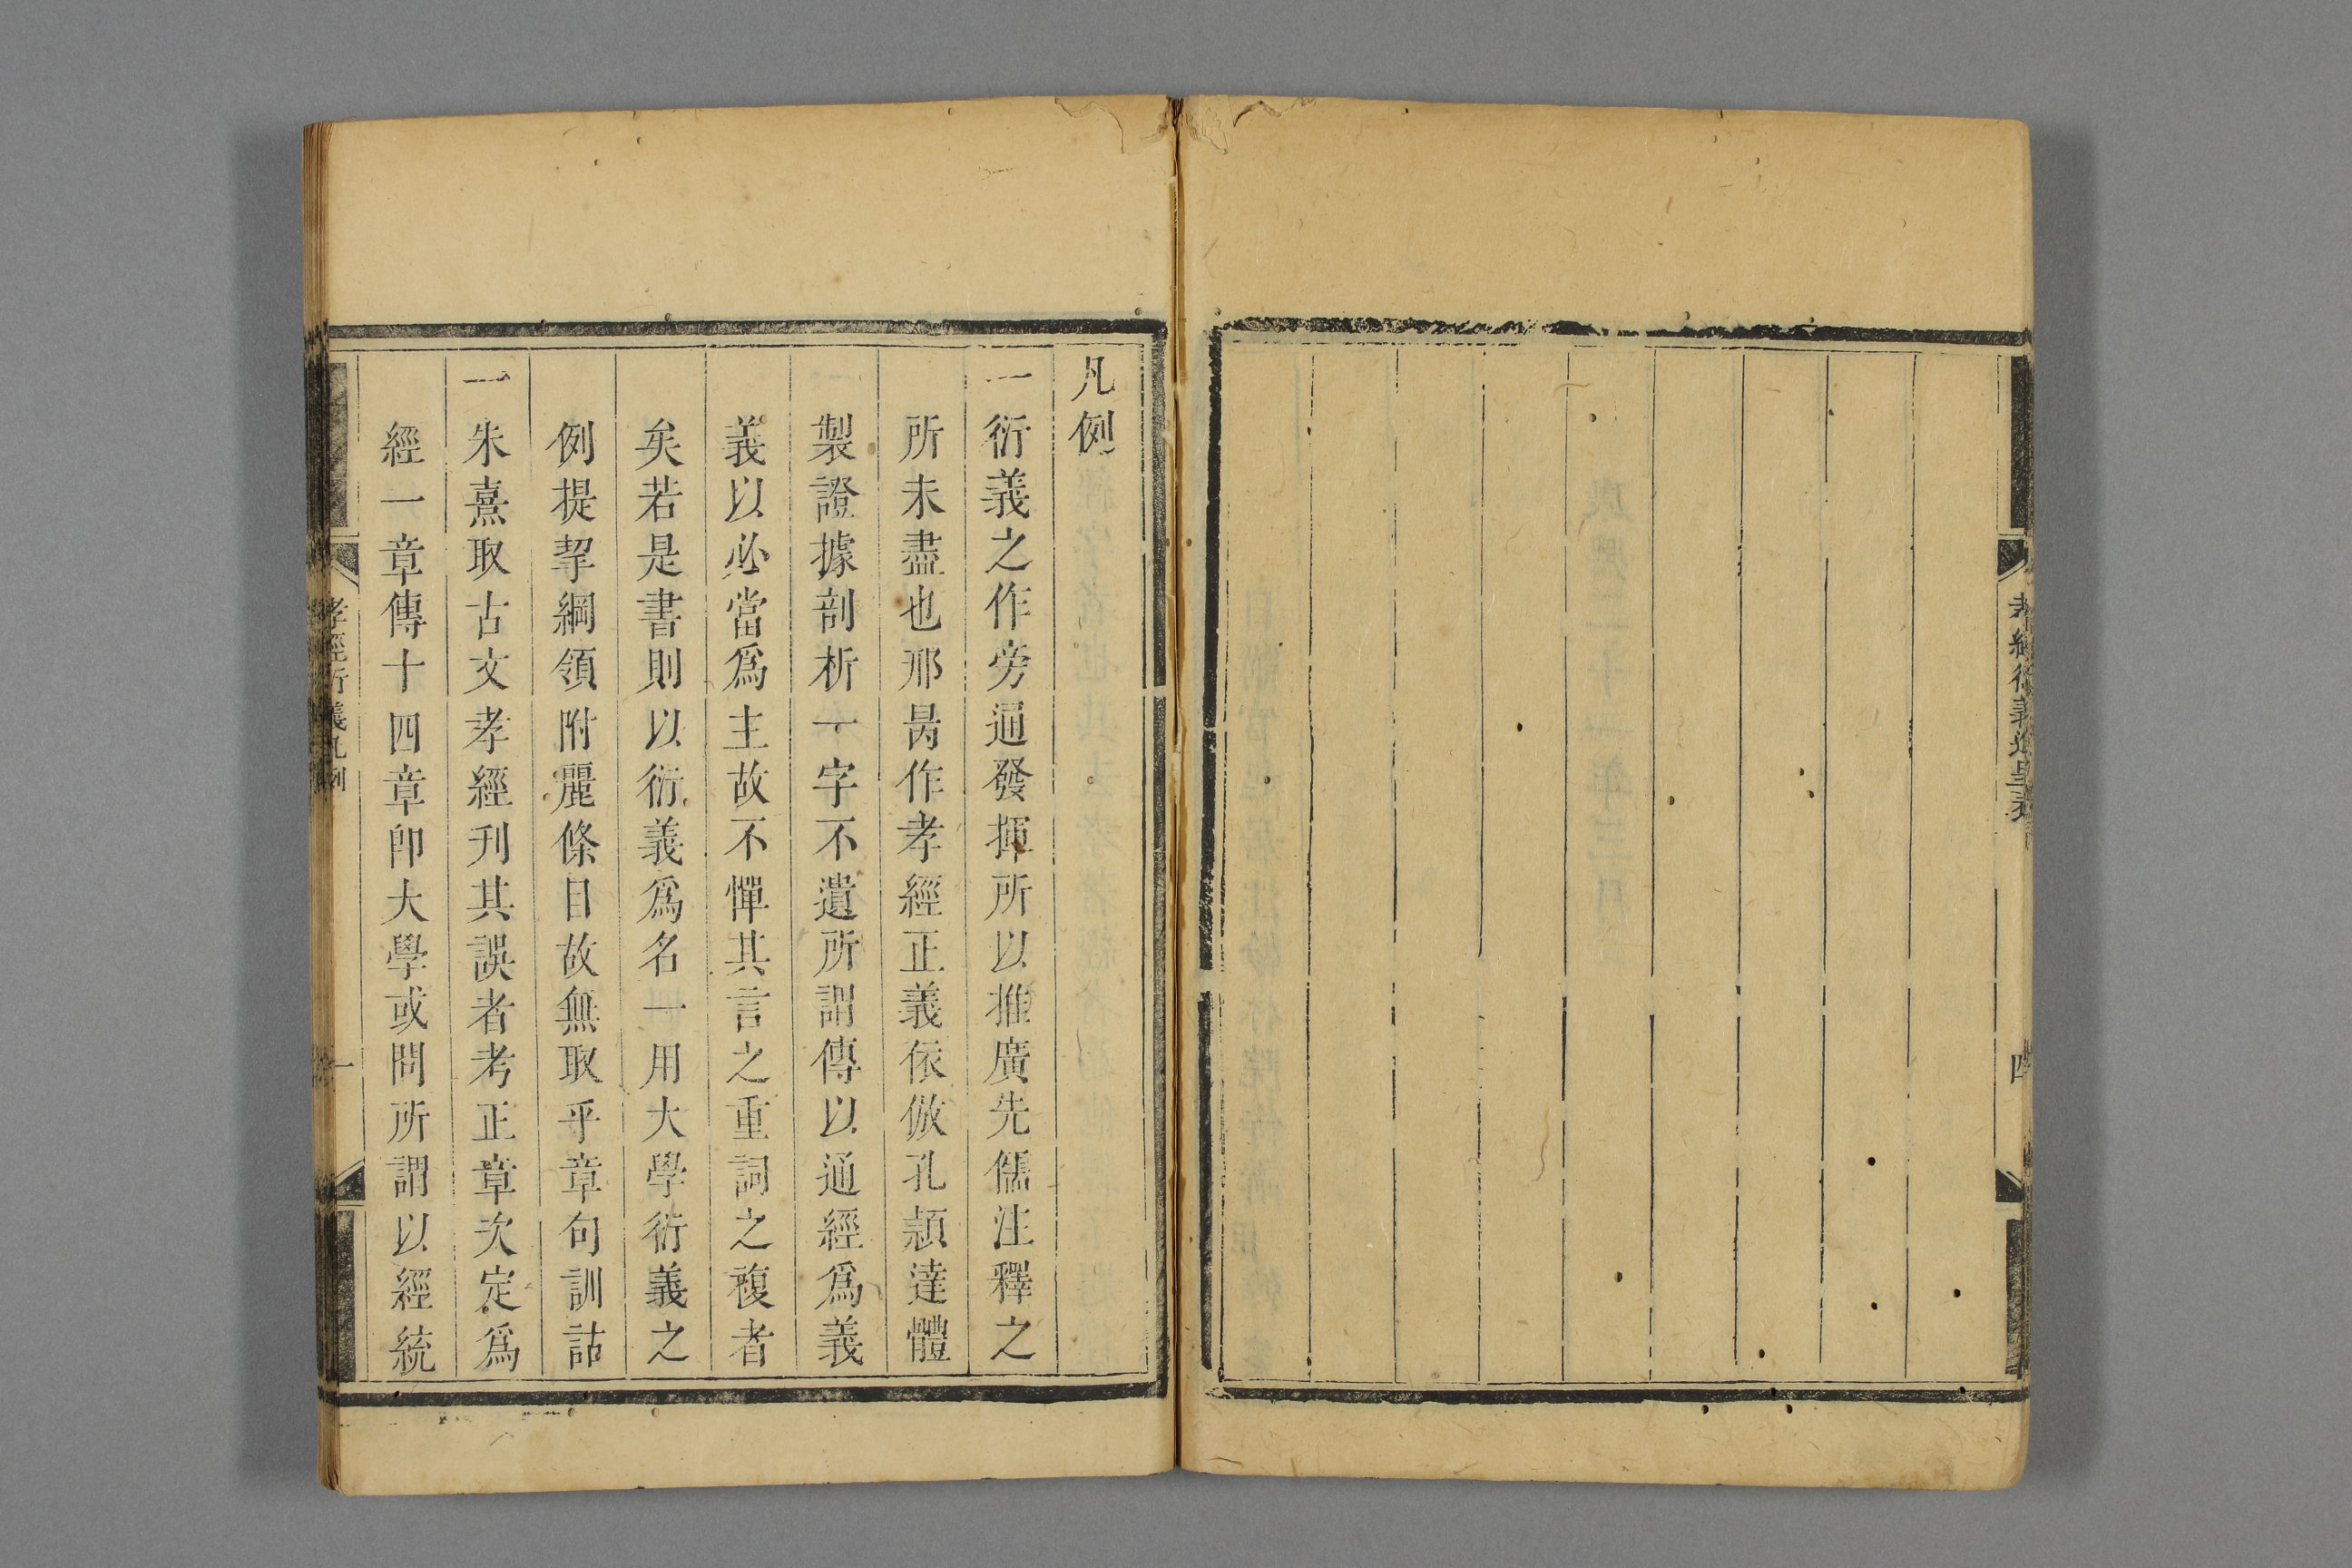 孝經衍義進呈表
四
凡例
一衍義之作旁通發揮所以推廣先儒注釋之
所未盡也邢昺作孝經正義依倣孔頴達體
製證據剖析一字不遺所謂傳以通經爲義
義以必當爲主故不憚其言之重詞之複者
矣若是書則以衍義爲名一用大學衍義之
例提挈綱領附麗條目故無取乎章句訓詁
一朱熹取古文孝經刋其誤者考正章次定爲
經一章傳十四章卽大學或問所謂以經統
孝經衍義凡例
一